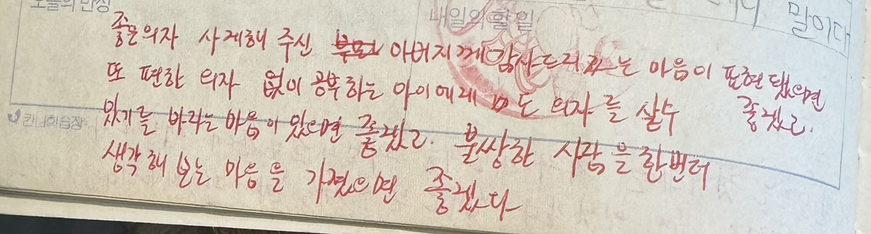 오늘의 반성
내일의 할 일
말이다
좋은의자 사게해 주신 아버지께 감사드리고는 마음이 표현됐으면 좋겠고.
또 편한 의자 없이 공부하는 아이에게 도 의자를 살수
있기를 바라는 마음이 있으면 좋겠고. 불쌍한 사람을 한번더
생각해 보는 마음을 가졌으면 좋겠다